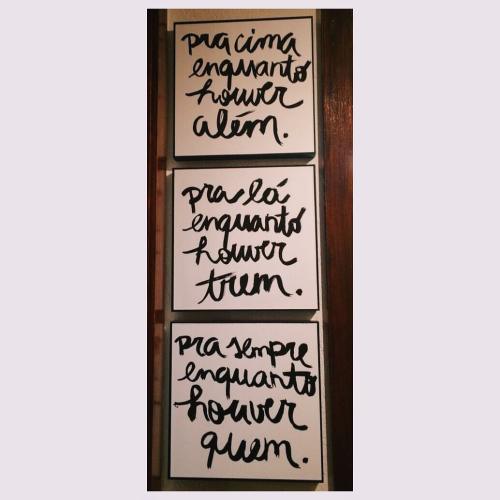 pra cima
enquanto
houver
além.
pra lá
enquanto
houver
trem.
pra sempre
enquanto
houver
quem.